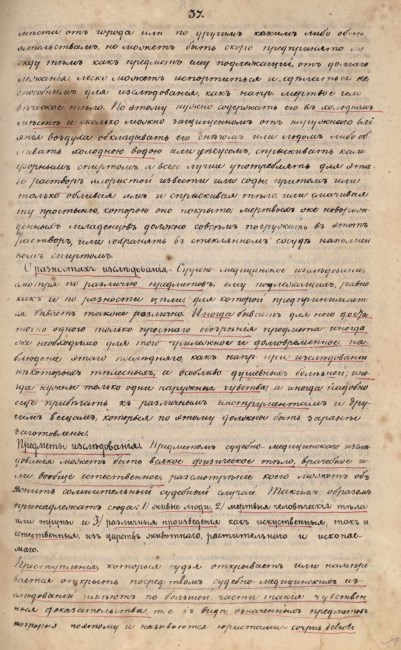 37.
мѣста отъ города или по другимъ какимъ либо обсто
ятельствамъ, не можетъ быть скоро предпринято ме
жду тѣмъ какъ предметъ ему подлежащій, отъ долгаго
лежанія легко можетъ испортиться и сдѣлаться не
способнымъ для изслѣдованія какъ напр. мертвое чело
вѣческое тѣло. По этому нужно содержать его въ холодномъ
мѣстѣ и сколько можно защищенномъ отъ наружнаго влі
янія воздуха обкладывать его снѣгомъ или льдомъ либо об
ливать холодною водою или уксусомъ, спрыскивать кам
форнымъ спиртомъ, а всего лучше употреблять для эта
го растворъ хлористой извести или соды, притомъ или
только обливая имъ и спрыскивая тѣло или смачивая
ту простыню, которою оно покрыто; мертвыхъ же новорож
денныхъ младенцовъ должно совсѣмъ погружать въ этотъ
растворъ, или сохранять въ стеклянномъ сосудѣ наполнен
номъ спиртомъ.
О разностяхъ изслѣдованія. Судебно медицинское изслѣдованіе,
смотря по различію предметовъ, ему подлежащихъ, равно
какъ и по разности цѣли для которой предпринимает
ся бываетъ также различно. Иногда бываетъ для него доста
точно одного только простаго обозрѣнія предмета иногда
же необходимо для того прилежное и долговременное на
блюденіе этаго послѣдняго какъ напр при изслѣдованіи
нѣкоторыхъ тѣлесныхъ, а особливо душевныхъ болѣзней; ино
гда нужны только одни наружныя чувства, а иногда надобно
еще прибѣгать къ различнымъ инструментамъ и дру
гимъ вещамъ, которыя по этому должны быть заранѣе
заготовлены.
Предметы изслѣдованія. Предметомъ судебно-медицинскаго изслѣ
дованія можетъ быть всякое физическое тѣло, врачебное и
ли вообще естественное, разсмотрѣніе коего можетъ объ
яснить сомнительный судебный случай. Такимъ образомъ
принадлежатъ сюда: 1) живые люди, 2) мертвыя человѣческія тѣла
или трупы и 3) различныя произведенія какъ искуственныя, такъ и
естественныя, изъ царствъ животнаго, растительнаго и ископае
маго.
Преступленія которыя судья открываетъ или намѣре
вается открыть посредствомъ судебно-медицинскихъ из
слѣдованій имѣютъ по большей части такія чувствен
ныя доказательства т.е. въ видѣ означенныхъ предметовъ
которыя поэтому и называются юристами corpus delicti